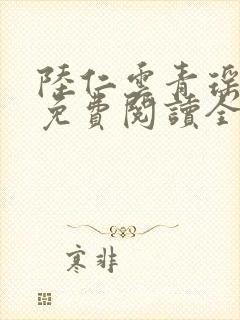 陸仁雲青瑤
免費閱讀全
寒非